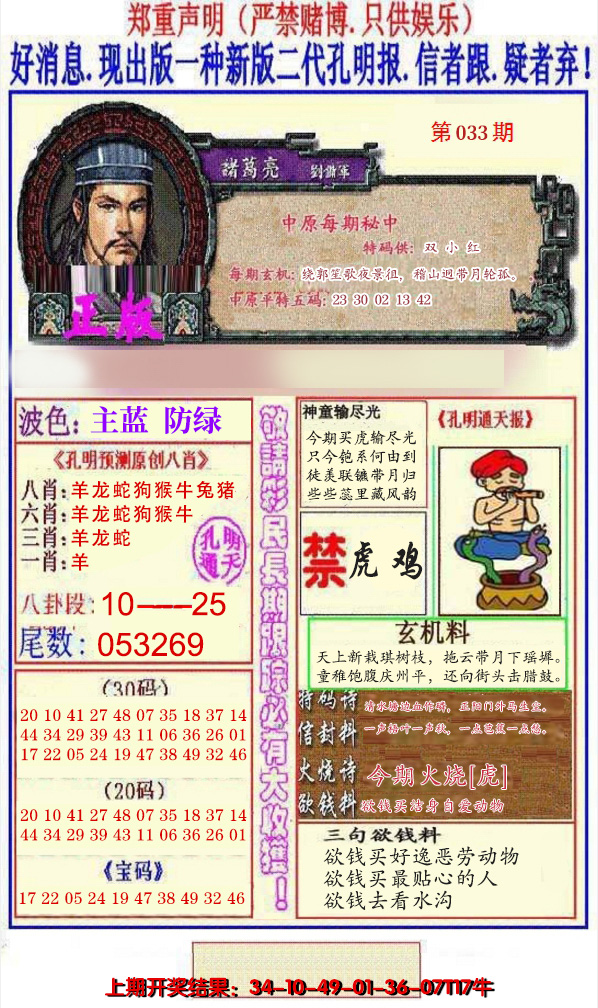 郑重声明（严禁赌博.只供娱乐）
好消息.现出版一种新版二代孔明报.信者跟.疑者弃！
第033期
諸葛亮 劉備軍
中原每期秘中
特码供：双小红
每期玄机：绕郭笙歌夜景徂，稽山迥带月轮孤。
中原平特五码：23 30 02 13 42
正版
波色：主蓝 防绿
《孔明预测原创八肖》
八肖：羊龙蛇狗猴牛兔猪
六肖：羊龙蛇狗猴牛
三肖：羊龙蛇
一肖：羊
孔明
通天
八卦段：10——25
尾数：053269
（30码）
20 10 41 27 48 07 35 18 37 14
44 34 29 39 43 11 06 36 26 01
17 22 05 24 19 47 38 49 32 46
（20码）
20 10 41 27 48 07 35 18 37 14
44 34 29 39 43 11 06 36 26 01
《宝码》
17 22 05 24 19 47 38 49 32 46
敬請彩民長期跟踪必有大收獲！
神童输尽光
今期买虎输尽光
只今匏系何由到
徒羡联镳带月归
些些蕊里藏风韵
《孔明通天报》
禁 虎 鸡
玄机料
天上新栽琪树枝，拖云带月下瑶墀。
童稚饱腹庆州平，还向街头击腊鼓。
特码诗 清水塘边血作磷，正阳门外马生尘。
信封料 一声梧叶一声秋，一点芭蕉一点愁。
火烧诗 今期火烧[虎]
欲钱料 欲钱买洁身自爱动物
三句欲钱料
欲钱买好逸恶劳动物
欲钱买最贴心的人
欲钱去看水沟
上期开奖结果：34-10-49-01-36-07T17牛